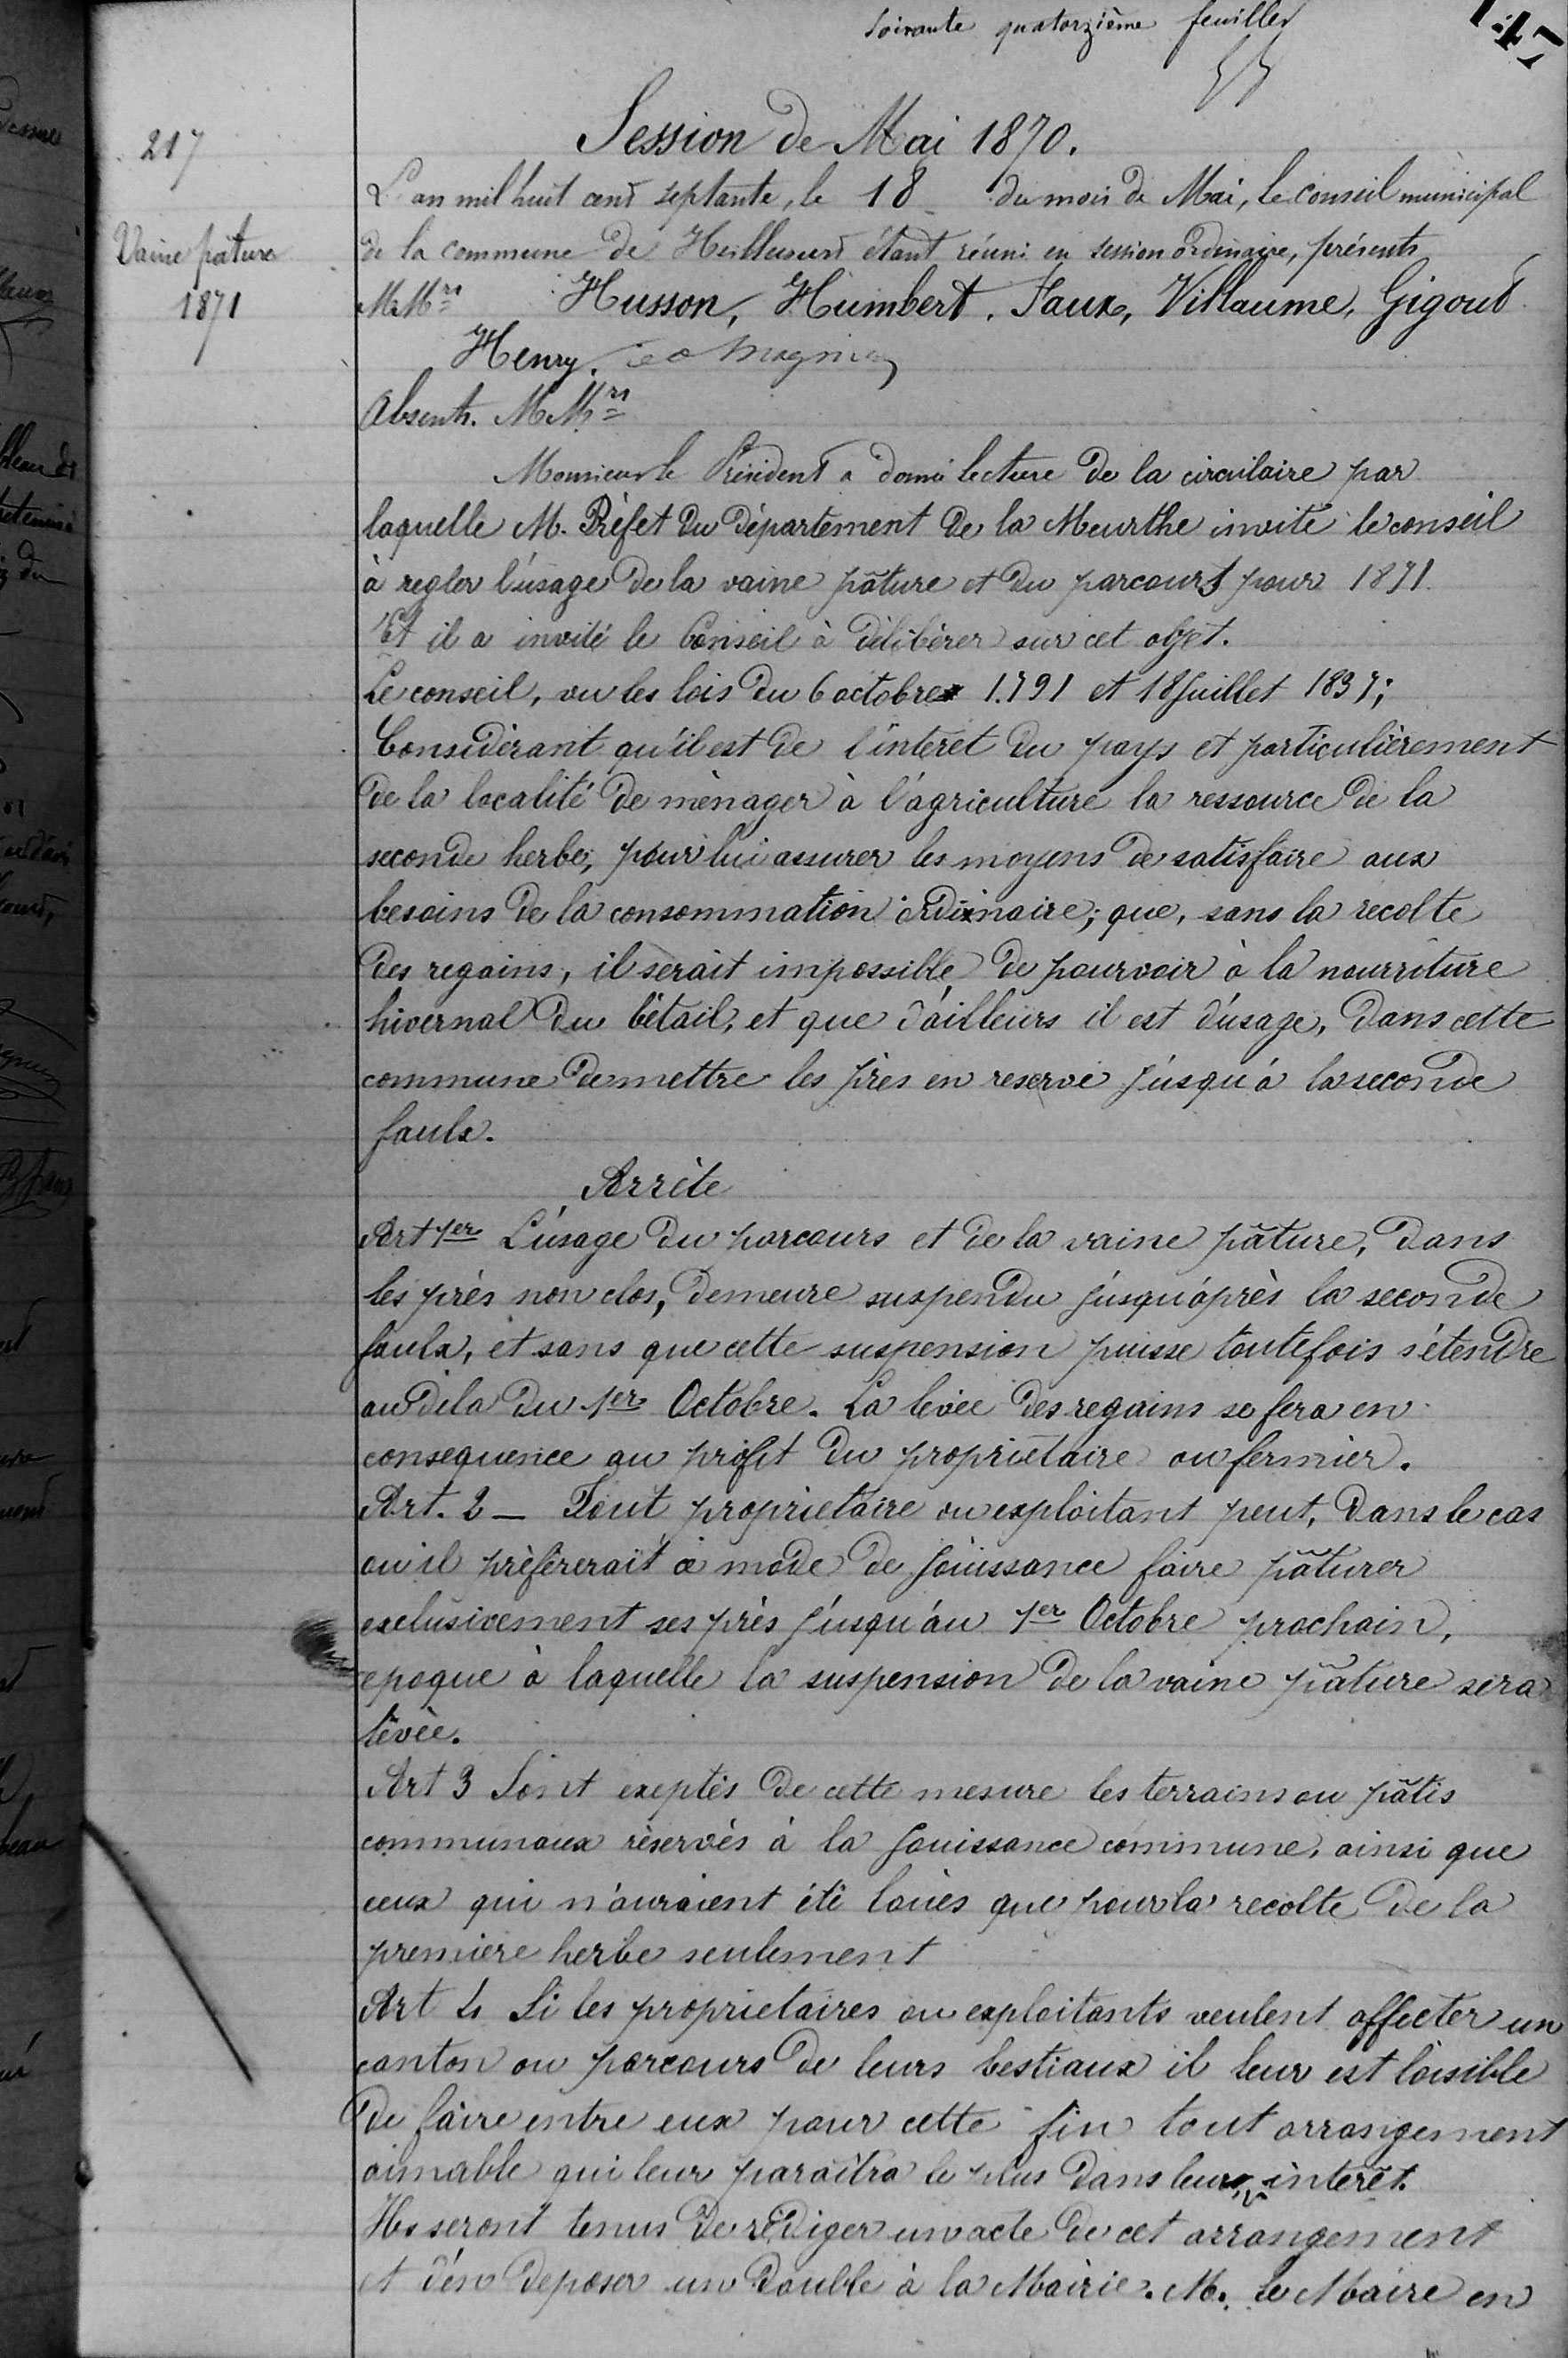 Soixante quatorzième feuillet
147
217
Vaine pâture
1871
Session de Mai 1870.
L'an mil huit cent septante, le 18 du mois de Mai, le conseil municipal
de la commune de étant réuni en session ordinaire, présents
M.Mrs Husson, Humbert, Faux, Villaume, Gigout
Henry. Magnien
Absents. M.Mrs
Monsieur le Président a donné lecture de la circulaire par
laquelle M. Prèfet du Département de la Meurthe invite le conseil
à regler l'usage de la vaine pâture et du parcours pour 1871.
Et il a invité le Conseil à délibèrer sur cet objet.
Le conseil, vu les lois du 6 octobre 1.791 et 18 Juillet 1837;
Considèrant qu'il est de l'intèret du pays et particulièrement
de la localité de mènager à l'agriculture la ressource de la
seconde herbe, pour lui assurer les moyens de satisfaire aux
besoins de la consommation ordinaire; que, sans la recolte
des regains, il serait impossible de pourvoir à la nourriture
hivernal du bétail, et que d'ailleurs il est d'usage, dans cette
commune de mettre les près en reserve jusqu'à la seconde
faulx.
Arrète
Art 1er L'usage du parcours et de la vaine pâture, dans
les près non clos, demeure suspendu jusqu'après la seconde
faulx, et sans que cette suspension puisse toutefois s'étendre
au dela du 1er Octobre. La levée des regains se fera en
consequence au profit du propriétaire ou fermier.
Art. 2 _ Tout proprietaire ou exploitant peut, dans le cas
ou il prèfèrerait ce mode de jouissance faire pâturer
exclusivement ses près jusqu'au 1er Octobre prochain,
epoque à laquelle la suspension de la vaine pâture sera
levèe.
Art 3 Sont exeptès de cette mesure les terrains ou pâtis
communaux rèservès à la jouissance commune, ainsi que
ceux qui n'auraient été loués que pour la recolte de la
premiere herbe seulement
Art 4 Si les proprietaires ou exploitants veulent affecter un
canton au parcours de leurs bestiaux il leur est loisible
de faire entre eux pour cette fin tout arrangement
aimable qui leur paraîtra le plus dans leur intérêt.
Ils seront tenus de rèdiger un acte de cet arrangement
et d'en deposer un double à la Mairie. M. le Maire en